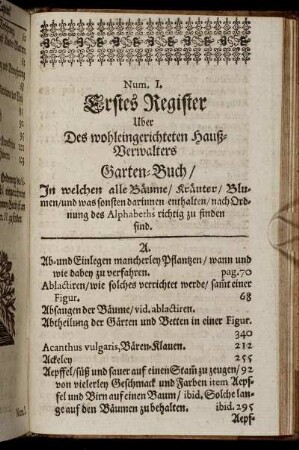 Num. I.
Erstes Register
Uber
Des wohleingerichteten Hauß-
Verwalters
Garten-Buch/
In welchen alle Bäume/ Kräuter/ Blu-
men/ und was sonsten darinnen enthalten/ nach Ord-
nung des Alphabeths richtig zu finden
sind.
A.
Ab- und Einlegen mancherley Pflantzen/ wann und
wie dabey zu verfahren. pag. 70
Ablactiren/ wie solches verrichtet werde/ samt einer
Figur. 68
Absaugen der Bäume/ vid. ablactiren.
Abtheilung der Gärten und Betten in einer Figur.
340
Acanthus vulgaris, Bären-Klauen. 212
Ackeley 255
Aepffel/ süß und sauer auf einen Stam̃ zu zeugen/ 92
von vielerley Geschmack und Farben item Aepf-
fel und Birn auf einen Baum/ ibid. Solche lan-
ge auf den Bäumen zu behalten. ibid. 295
Aepf-